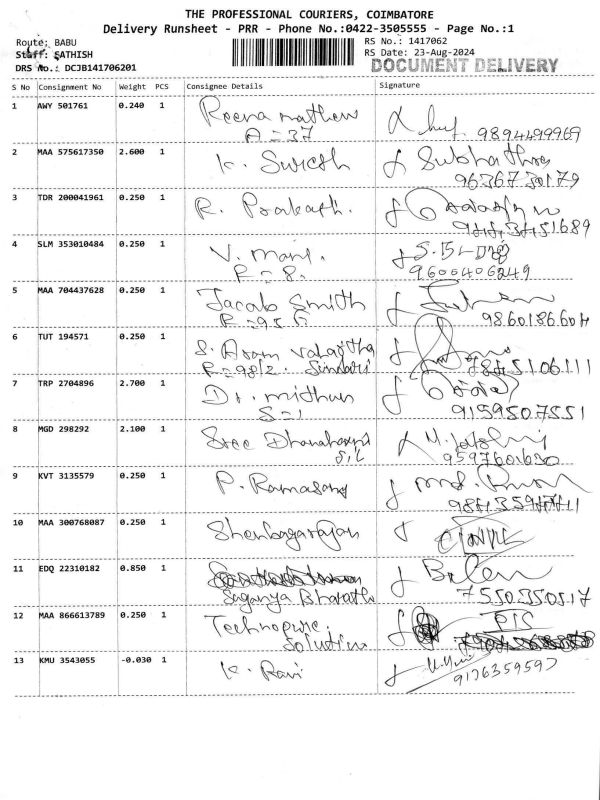 THE PROFESSIONAL COURIERS, COIMBATORE
Delivery Runsheet - PRR - Phone No.:0422-3505555 - Page No.:1
Route: BABU
RS No.: 1417062
Staff: SATHISH
RS Date: 23-Aug-2024
DRS No.: DCJB141706201
DOCUMENT DELIVERY
S No Consignment No Weight PCS Consignee Details Signature
1 AWY 501761 0.240 1 Reena mathew
A = 37 9894499969
2 MAA 575617350 2.600 1 K. Suresh Subhathra
9636730179
3 TDR 200041961 0.250 1 R. Prakash.
4 SLM 353010484 0.250 1 V. Mani.
R = 8. 9600406249
5 MAA 704437628 0.250 1 Jacob Smith
R = 95 9860186604
6 TUT 194571 0.250 1 S. Aram
R = 98/2.
7 TRP 2704896 2.700 1 Dr. midhun
S = 1 9159507551
8 MGD 298292 2.100 1 Sree
9597601630
9 KVT 3135579 0.250 1 P. Ramasamy
10 MAA 300768087 0.250 1 Shenbagarajan
11 EDQ 22310182 0.850 1
Saganya Bharathi 7550350517
12 MAA 866613789 0.250 1 Technopure
Solution
13 KMU 3543055 -0.030 1 K. Ravi
9176359597